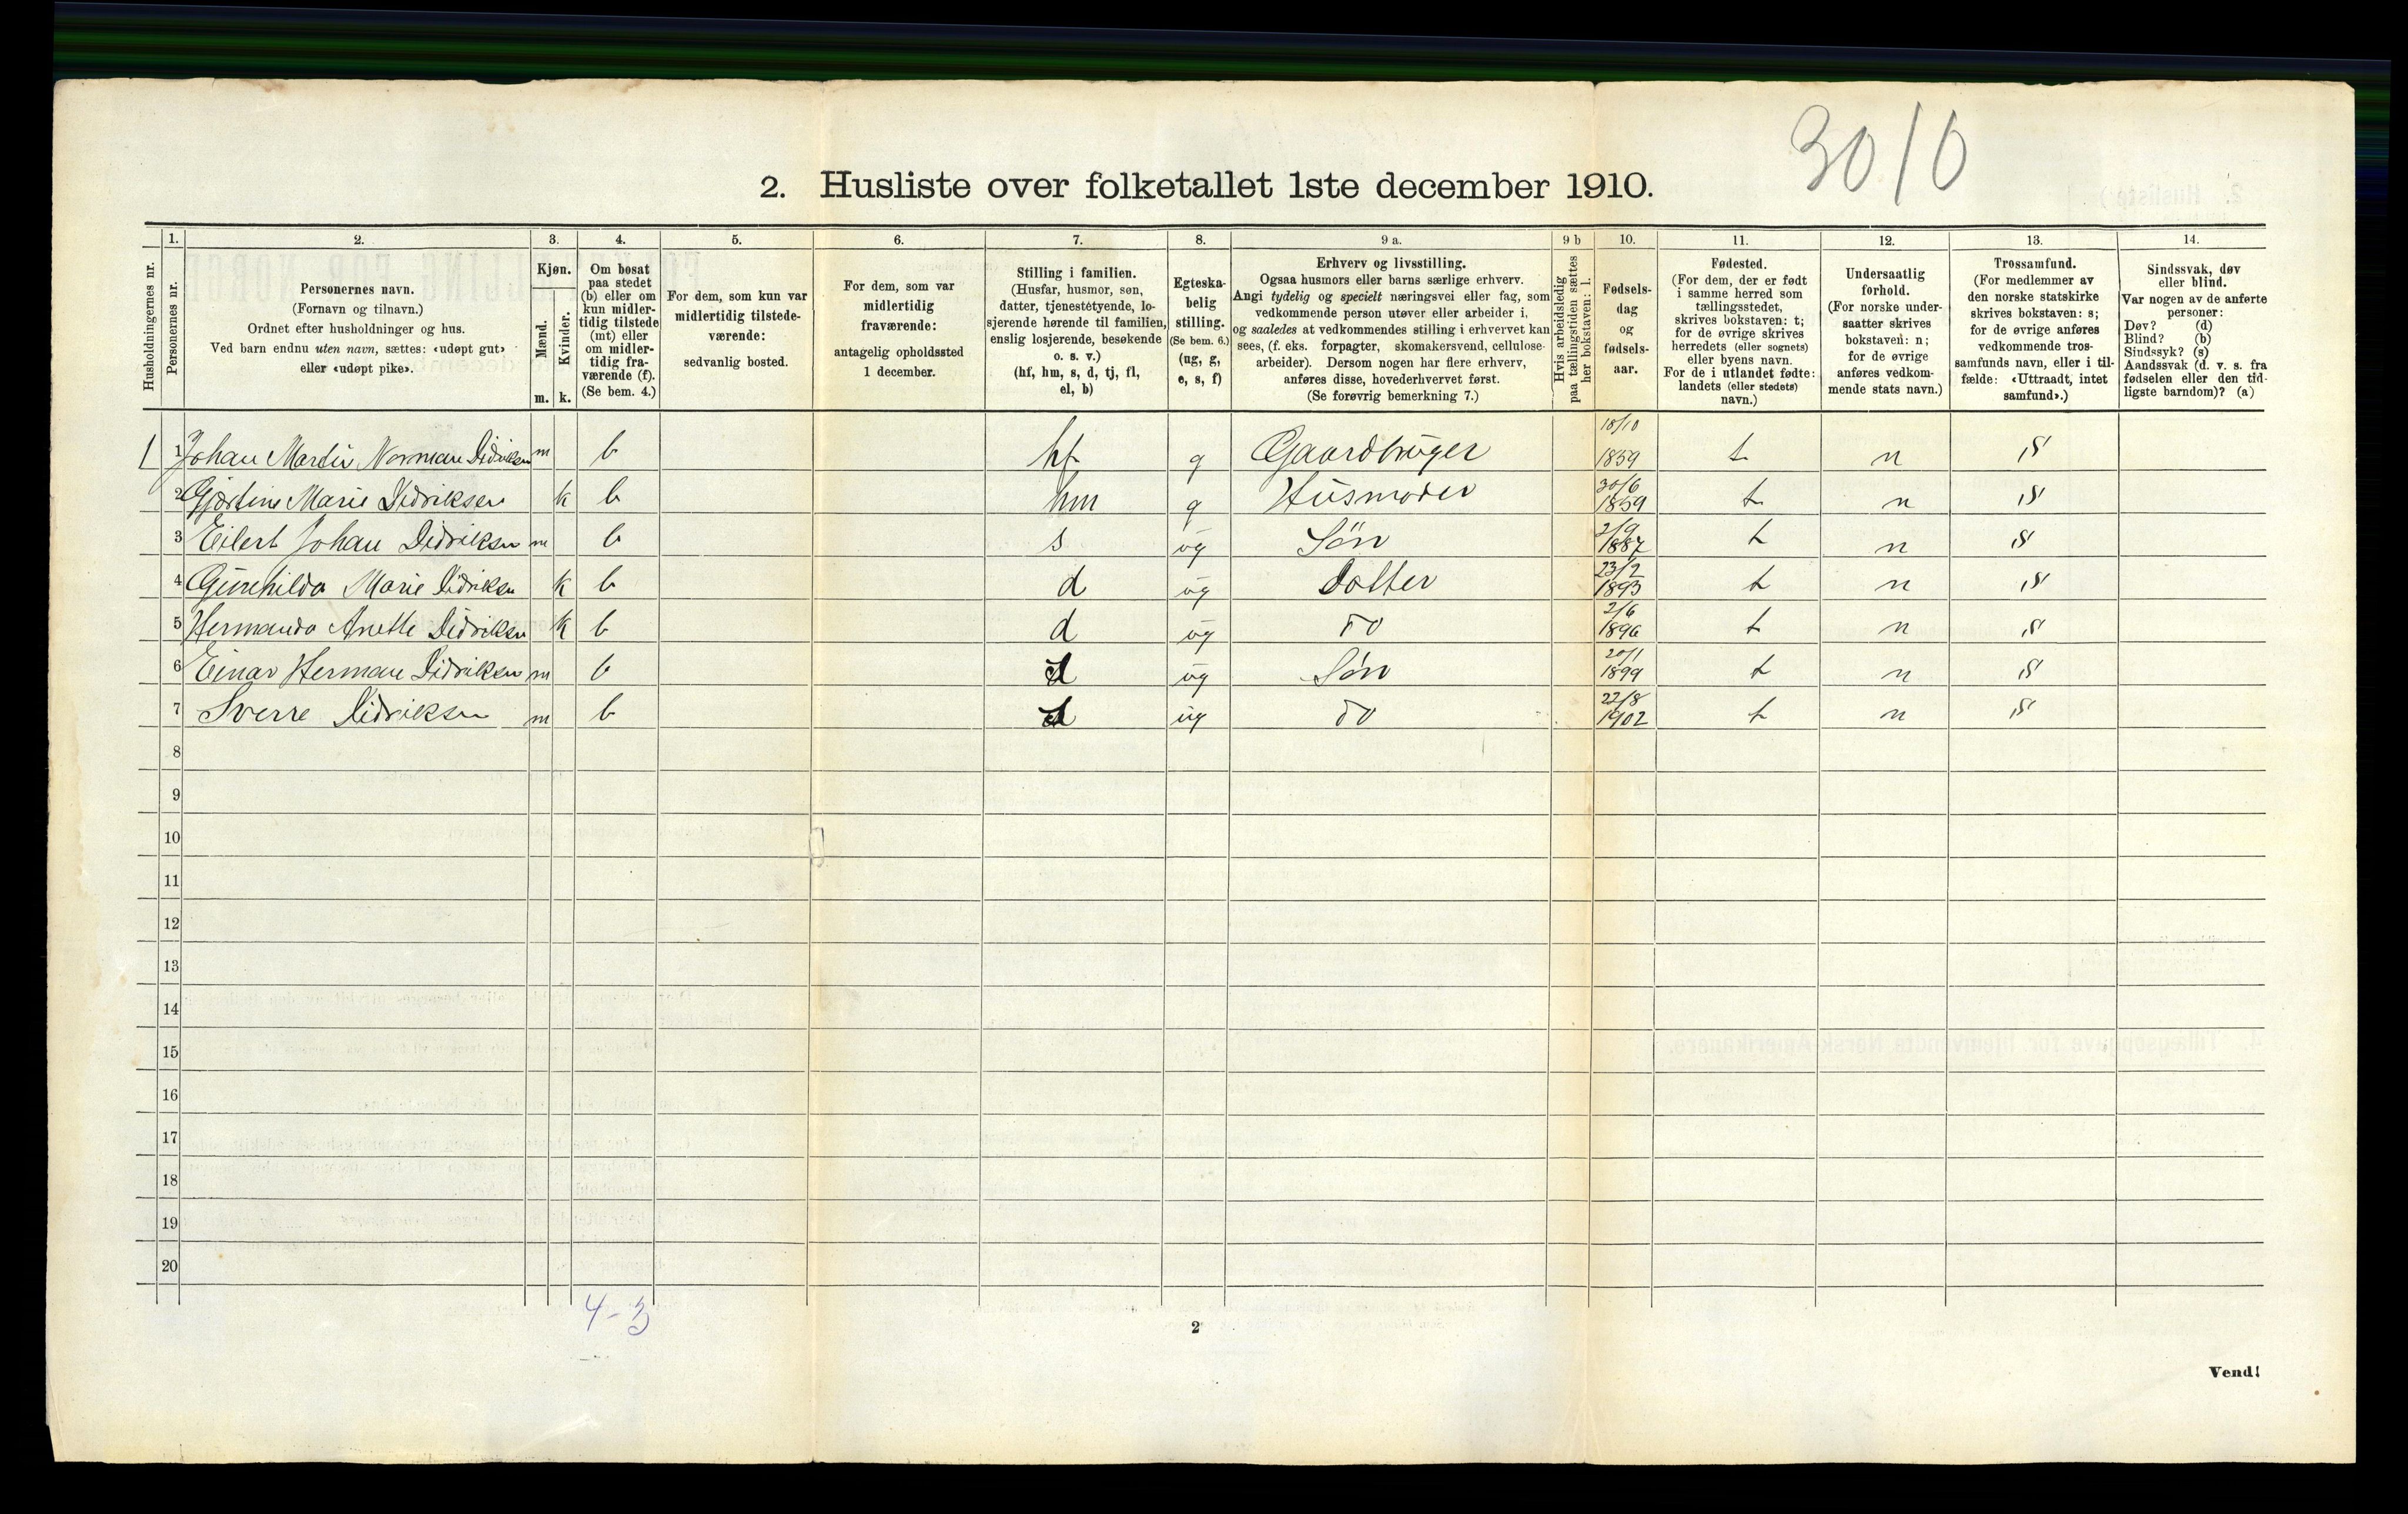 3010
2. Husliste over folketallet 1ste december 1910.
Husholdningernes nr.
1.
Personernes nr.
2.
Personernes navn.
(Fornavn og tilnavn.)
Ordnet efter husholdninger og hus.
Ved barn endnu uten navn, sættes: «udøpt gut»
eller «udøpt pike».
3.
Kjøn.
Mænd.
Kvinder.
m. k.
4.
Om bosat
paa stedet
(b) eller om
kun midler-
tidig tilstede
(mt) eller
om midler-
tidig fra-
værende (f).
(Se bem. 4.)
5.
For dem, som kun var
midlertidig tilstede-
værende:
sedvanlig bosted.
6.
For dem, som var
midlertidig
fraværende:
antagelig opholdssted
1 december.
7.
Stilling i familien.
(Husfar, husmor, søn,
datter, tjenestetyende, lo-
sjerende hørende til familien,
enslig losjerende, besøkende
o. s. v.)
(hf, hm, s, d, tj, fl,
el, b)
8.
Egteska-
belig
stilling.
(Se bem. 6.)
(ug, g,
e, s, f)
9 a.
Erhverv og livsstilling.
Ogsaa husmors eller barns særlige erhverv.
Angi tydelig og specielt næringsvei eller fag, som
vedkommende person utøver eller arbeider i,
og saaledes at vedkommendes stilling i erhvervet kan
sees, (f. eks. forpagter, skomakersvend, cellulose-
arbeider). Dersom nogen har flere erhverv,
anføres disse, hovederhvervet først.
(Se forøvrig bemerkning 7.)
9 b
Hvis arbeidsledig
paa tællingstiden sættes
her bokstaven: l.
10.
Fødsels-
dag
og
fødsels-
aar.
11.
Fødested.
(For dem, der er født
i samme herred som
tællingsstedet,
skrives bokstaven: t;
for de øvrige skrives
herredets (eller sognets)
eller byens navn.
For de i utlandet fødte:
landets (eller stedets)
navn.)
12.
Undersaatlig
forhold.
(For norske under-
saatter skrives
bokstaven: n;
for de øvrige
anføres vedkom-
mende stats navn.)
13.
Trossamfund.
(For medlemmer av
den norske statskirke
skrives bokstaven: s;
for de øvrige anføres
vedkommende tros-
samfunds navn, eller i til-
fælde: «Uttraadt, intet
samfund».)
14.
Sindssvak, døv
eller blind.
Var nogen av de anførte
personer:
Døv? (d)
Blind? (b)
Sindssyk? (s)
Aandssvak (d. v. s. fra
fødselen eller den tid-
ligste barndom)? (a)
1 1 Johan Martin Norman Didriksen m b hf g Gaardbruger 18/10 1859 t n s
2 Gjertine Marie Didriksen k b hm g Husmoder 30/6 1859 t n s
3 Eilert Johan Didriksen m b s ug Søn 2/9 1887 t n s
4 Gunhilda Marie Didriksen k b d ug Datter 23/2 1893 t n s
5 Hermanda Anette Didriksen k b d ug do 2/6 1896 t n s
6 Einar Herman Didriksen m b ug Søn 20/1 1899 t n s
7 Sverre Didriksen m b ug do 22/8 1902 t n s
8
9
10
11
12
13
14
15
16
17
18
19
20
4-3
2
Vend!